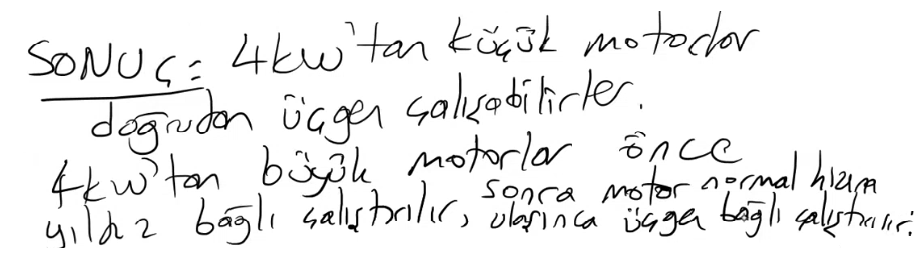 SONUÇ: 4kw'tan küçük motorlar
doğrudan üçgen çalışabilirler.
4kw'tan büyük motorlar önce
yıldız bağlı çalıştırılır, sonra motor normal hızına
ulaşınca üçgen bağlı çalıştırılır.